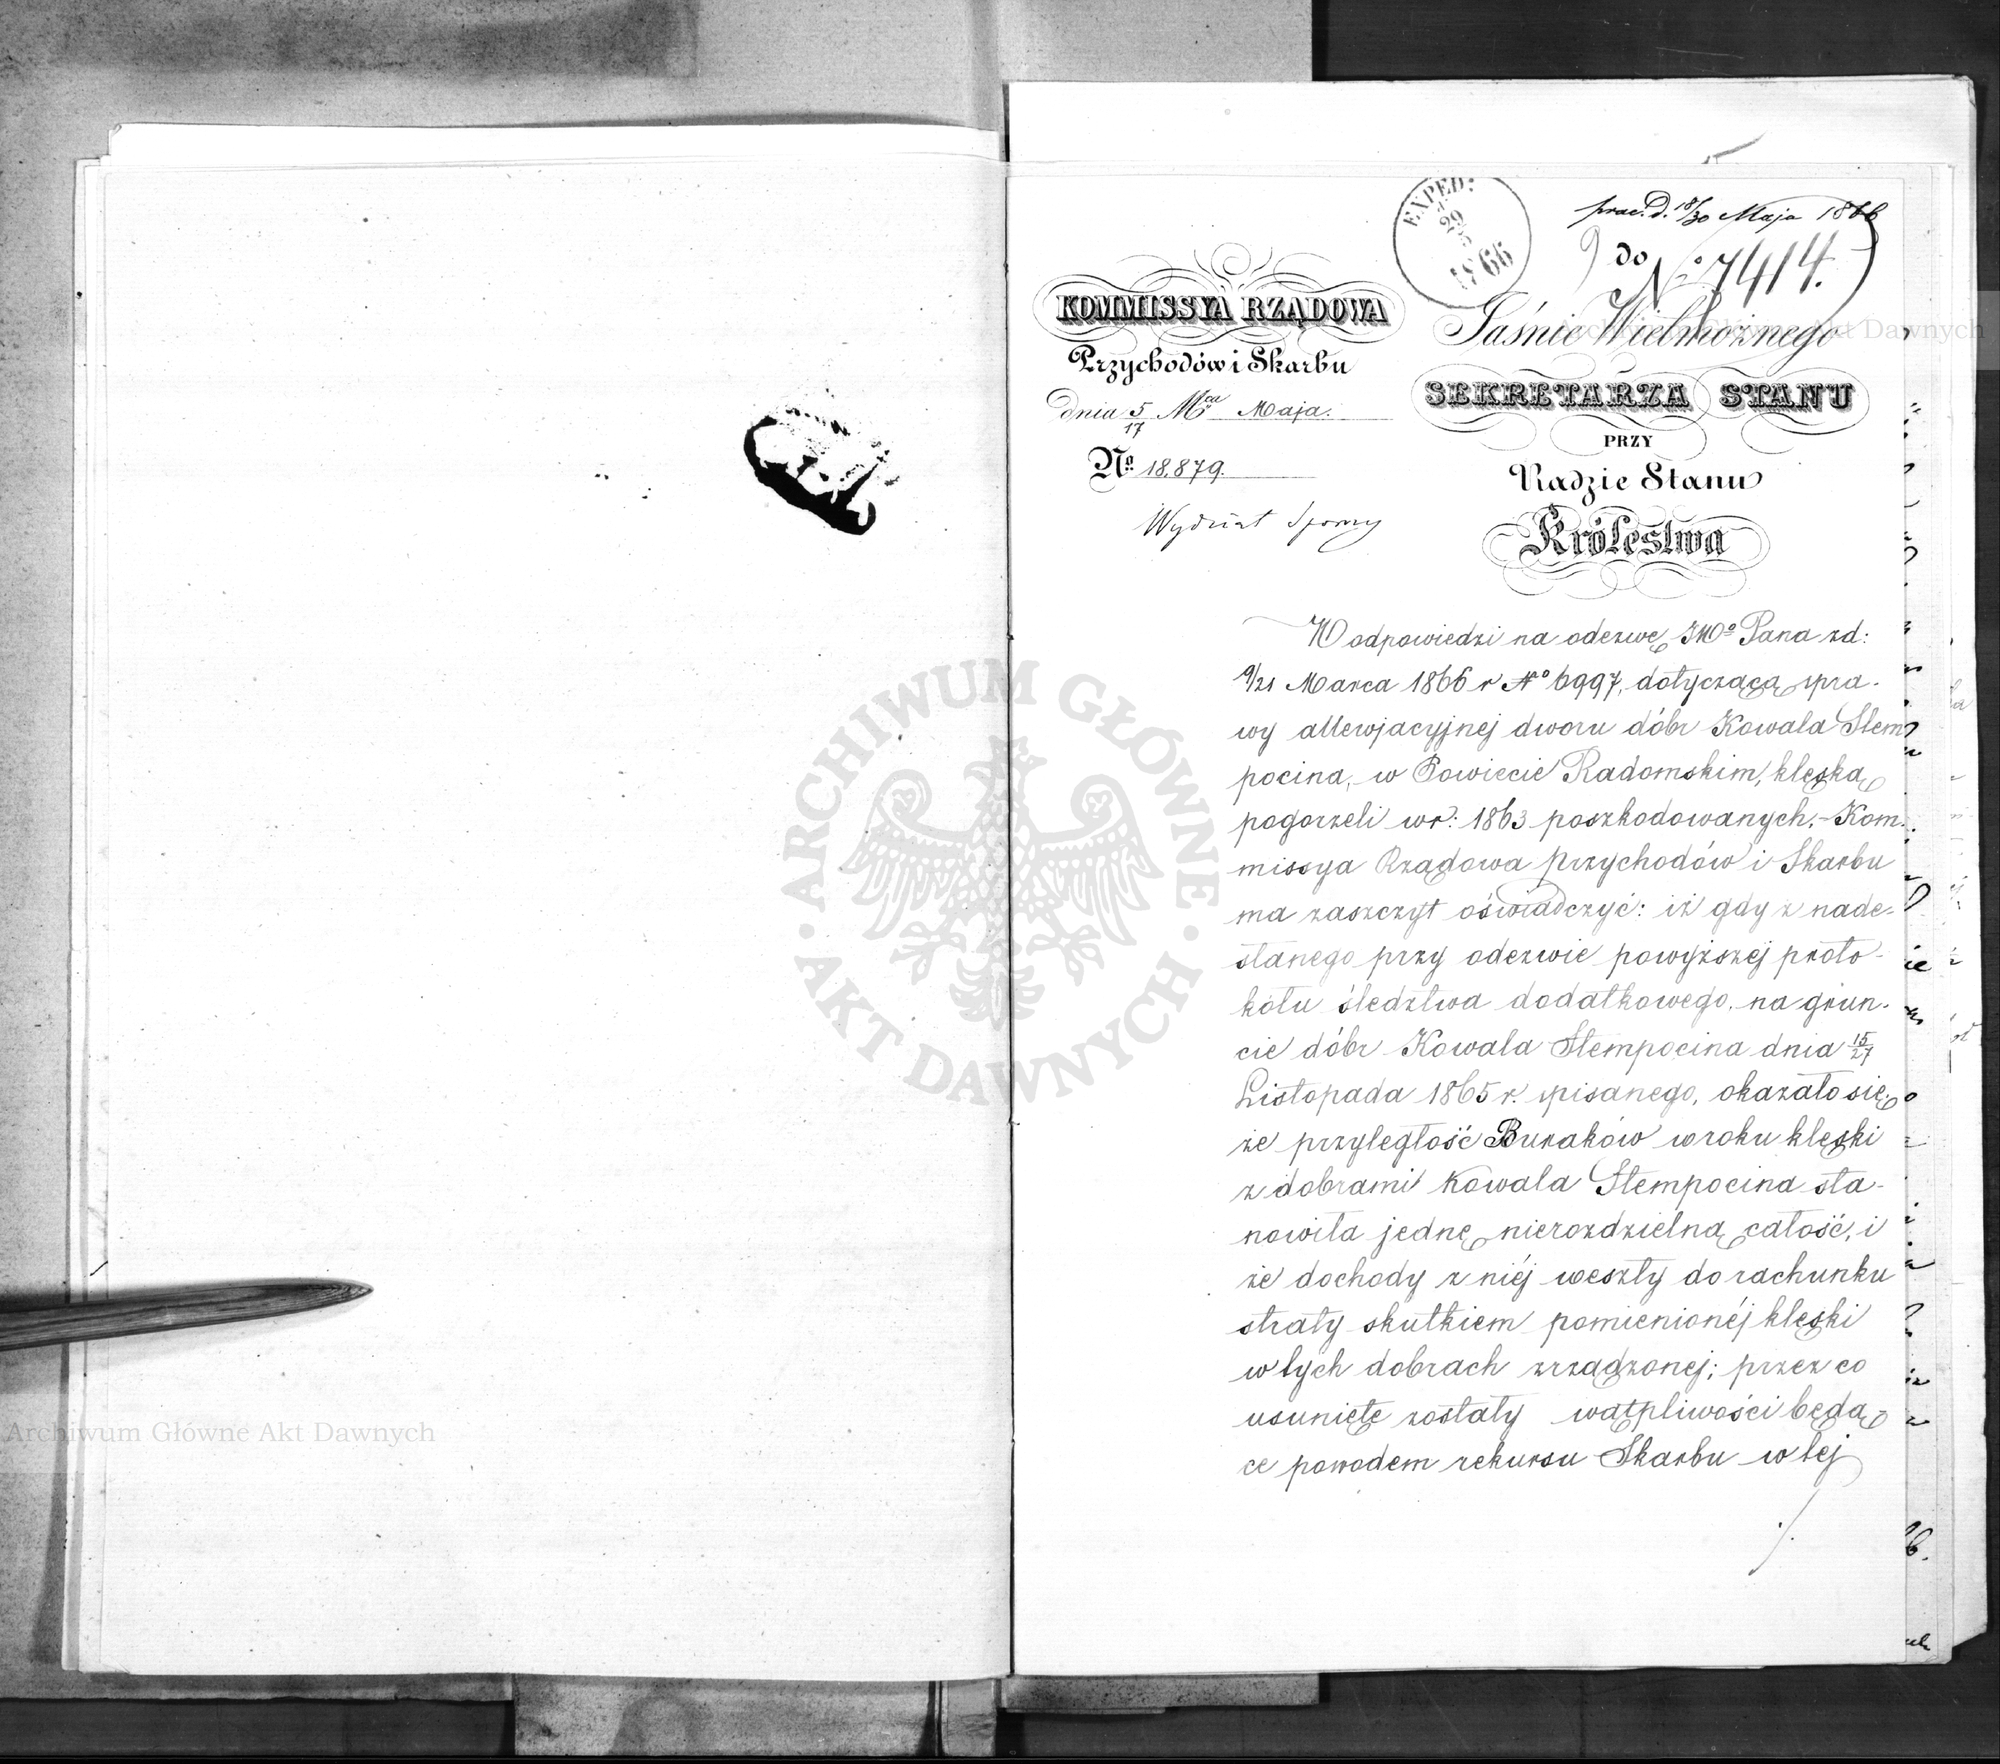 EXPED:
29
1866
prae. d. 18/30 Maja 1866
do
No 7414.
KOMMISSYA RZĄDOWA
Przychodów i Skarbu
dnia 5/17 Mca Maja.
No 18,879.
Wydział Sporny
Jaśnie Wielmożnego
SEKRETARZA STANU
PRZY
Radzie Stanu
Królestwa
W odpowiedzi na odezwę JWo Pana z d:
9/21 Marca 1866 r No 6997, dotyczącą spra-
wy allewjacyjnej dworu dóbr Kowala Stem
pocina, w Powiecie Radomskim, klęską
pogorzeli w r: 1863 poszkodowanych. – Kom-
missya Rządowa Przychodów i Skarbu
ma zaszczyt oświadczyć: iż gdy z nade-
słanego przy odezwie powyższej proto-
kółu śledztwa dodatkowego na grun-
cie dóbr Kowala Stempocina dnia 15/27
Listopada 1865 r. spisanego, okazało się,
że przyległość Buraków w roku klęski
z dobrami Kowala Stempocina sta-
nowiła jednę nierozdzielną całość, i
że dochody z niéj weszły do rachunku
straty skutkiem pomienionéj klęski
w tych dobrach zrządzonej; przez co
usunięte zostały wątpliwości będą-
ce powodem rekursu Skarbu w tej
./.
ARCHIWUM GŁÓWNE AKT DAWNYCH
Archiwum Główne Akt Dawnych
Archiwum Główne Akt Dawnych